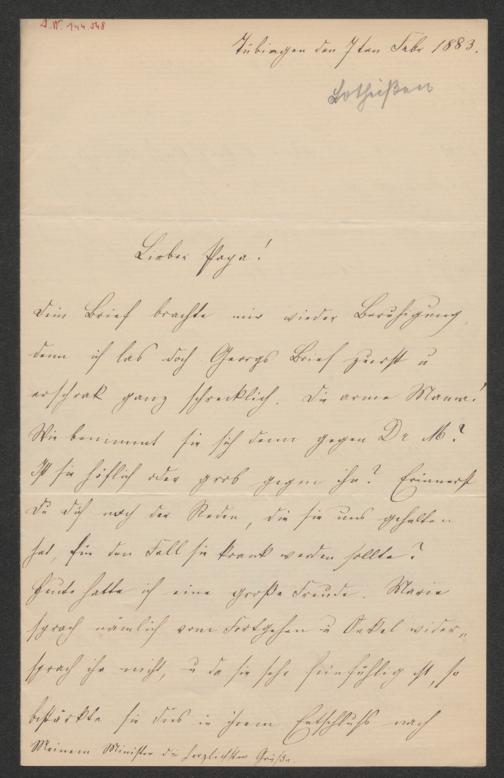 I.N. 144.548
Tübingen den 7ten Febr 1883.
Lotheißen
Lieber Papa!
Dein Brief brachte mir wieder Beruhigung,
denn ich las doch Georgs Brief zuerst u
erschrak ganz schrecklich. Die arme Mama!
Wie benimmt sie sich denn gegen Dr M?
Ist sie höflich oder grob gegen ihn? Erinnerst
Du Dich noch der Reden, die sie uns gehalten
hat, für den Fall sie krank werden sollte?
Heute hatte ich eine große Freude. Marie
sprach nämlich vom Fortgehen u Onkel wider-
sprach ihr nicht, u da sie sehr feinfühlig ist, so
bestärkte sie dies in ihrem Entschluß nach
Meinem Minister die herzlichsten Grüße.